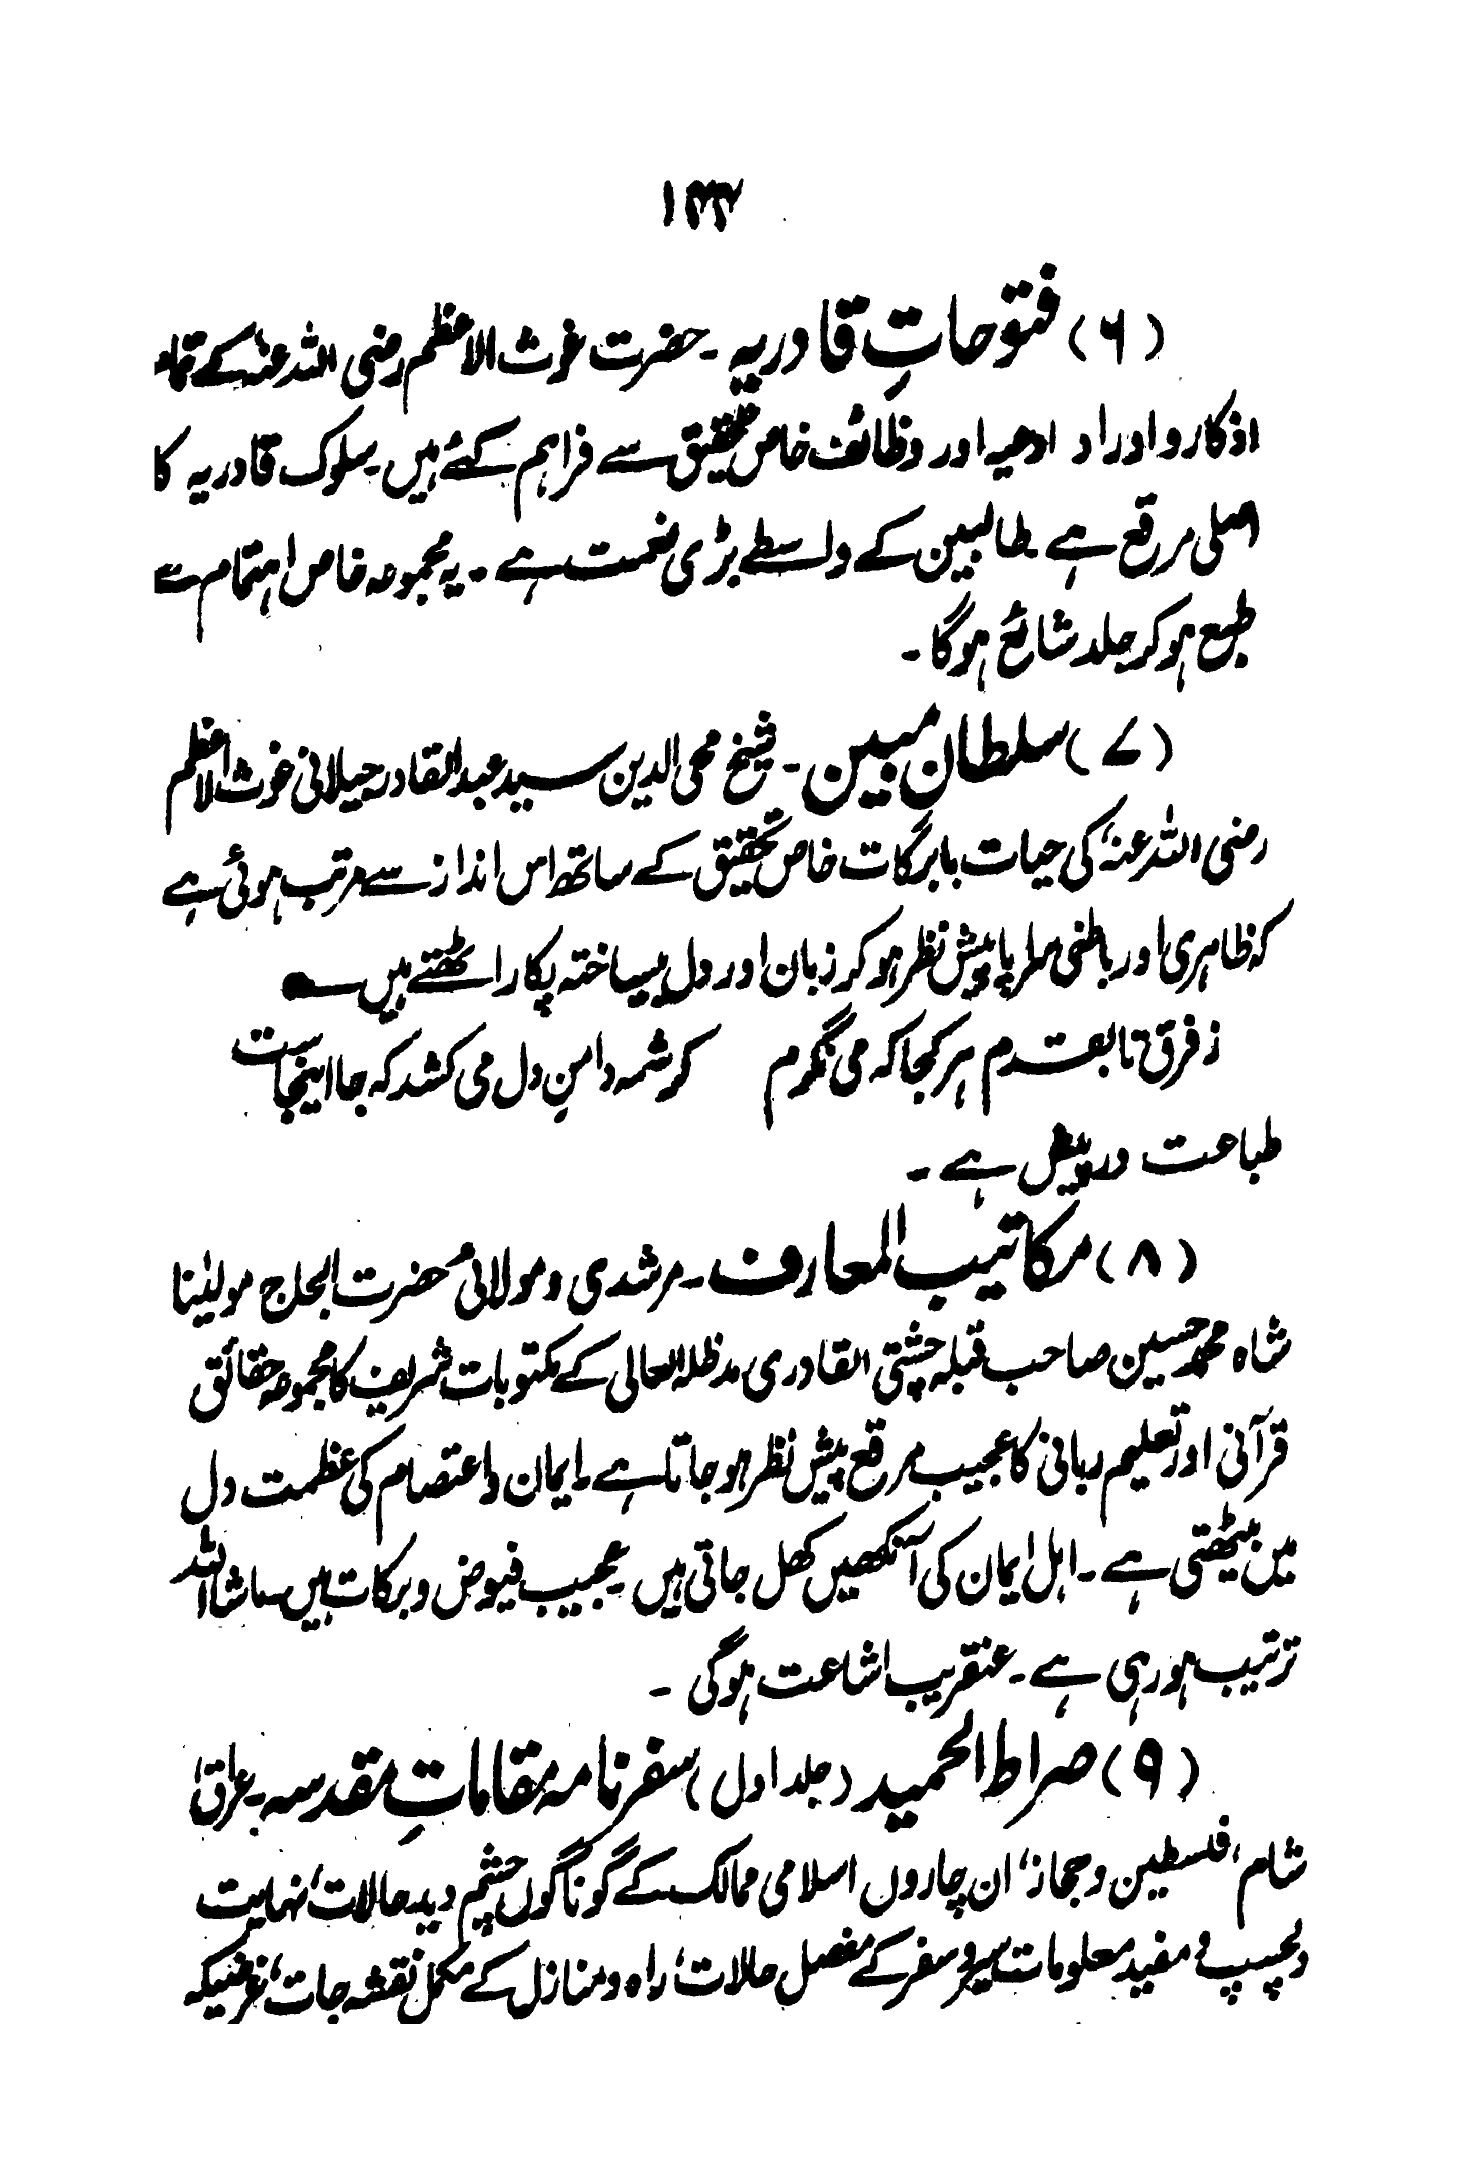 (۶) فتوحاتِ قادریہ ۔ حضرت غوث الاعظم رضی اللہ عنہ کے تمام
اذکار و اوراد ادعیہ اور وظائف خاص تحقیق سے فراہم کئے ہیں ۔ سلوک قادریہ کا
اصلی مرقع ہے ۔ طالبین کے واسطے بڑی نعمت ہے ۔ یہ مجموعہ خاص اہتمام سے
طبع ہو کر جلد شائع ہوگا ۔
(۷) سلطان مبین ۔ شیخ محی الدین سید عبدالقادر جیلانی غوث الاعظم
رضی اللہ عنہٗ کی حیات بابرکات خاص تحقیق کے ساتھ اس انداز سے مرتب ہوئی ہے
کہ ظاہری اور باطنی سراپا پیش نظر ہو کر زبان اور دل بیساختہ پکار اٹھتے ہیں ؎
ز فرق تا بقدم ہر کجا کہ می نگرم کرشمہ دامنِ دل می کشد کہ جا اینجاست
طباعت درپیش ہے ۔
(۸) مکاتیب المعارف ۔ مرشدی و مولائی حضرت الحاج مولیٰنا
شاہ محمد حسین صاحب قبلہ چشتی القادری مدظلہ العالی کے مکتوبات شریف کا مجموعہ حقائق
قرآنی اور تعلیم ربانی کا عجیب مرقع پیش نظر ہو جاتا ہے ۔ ایمان و اعتصام کی عظمت دل
میں بیٹھتی ہے ۔ اہل ایمان کی آنکھیں کھل جاتی ہیں ۔ عجیب فیوض و برکات ہیں ۔ ماشا اللہ
ترتیب ہو رہی ہے ۔ عنقریب اشاعت ہوگی ۔
(۹) صراط الحمید (جلد اول) سفرنامہ مقاماتِ مقدسہ ۔ عراق،
شام، فلسطین و حجاز، ان چاروں اسلامی ممالک کے گوناگوں چشم دید حالات، نہایت
دلچسپ و مفید معلومات سیر و سفر کے مفصل حالات، راہ و منازل کے مکمل نقشہ جات، غرضیکہ